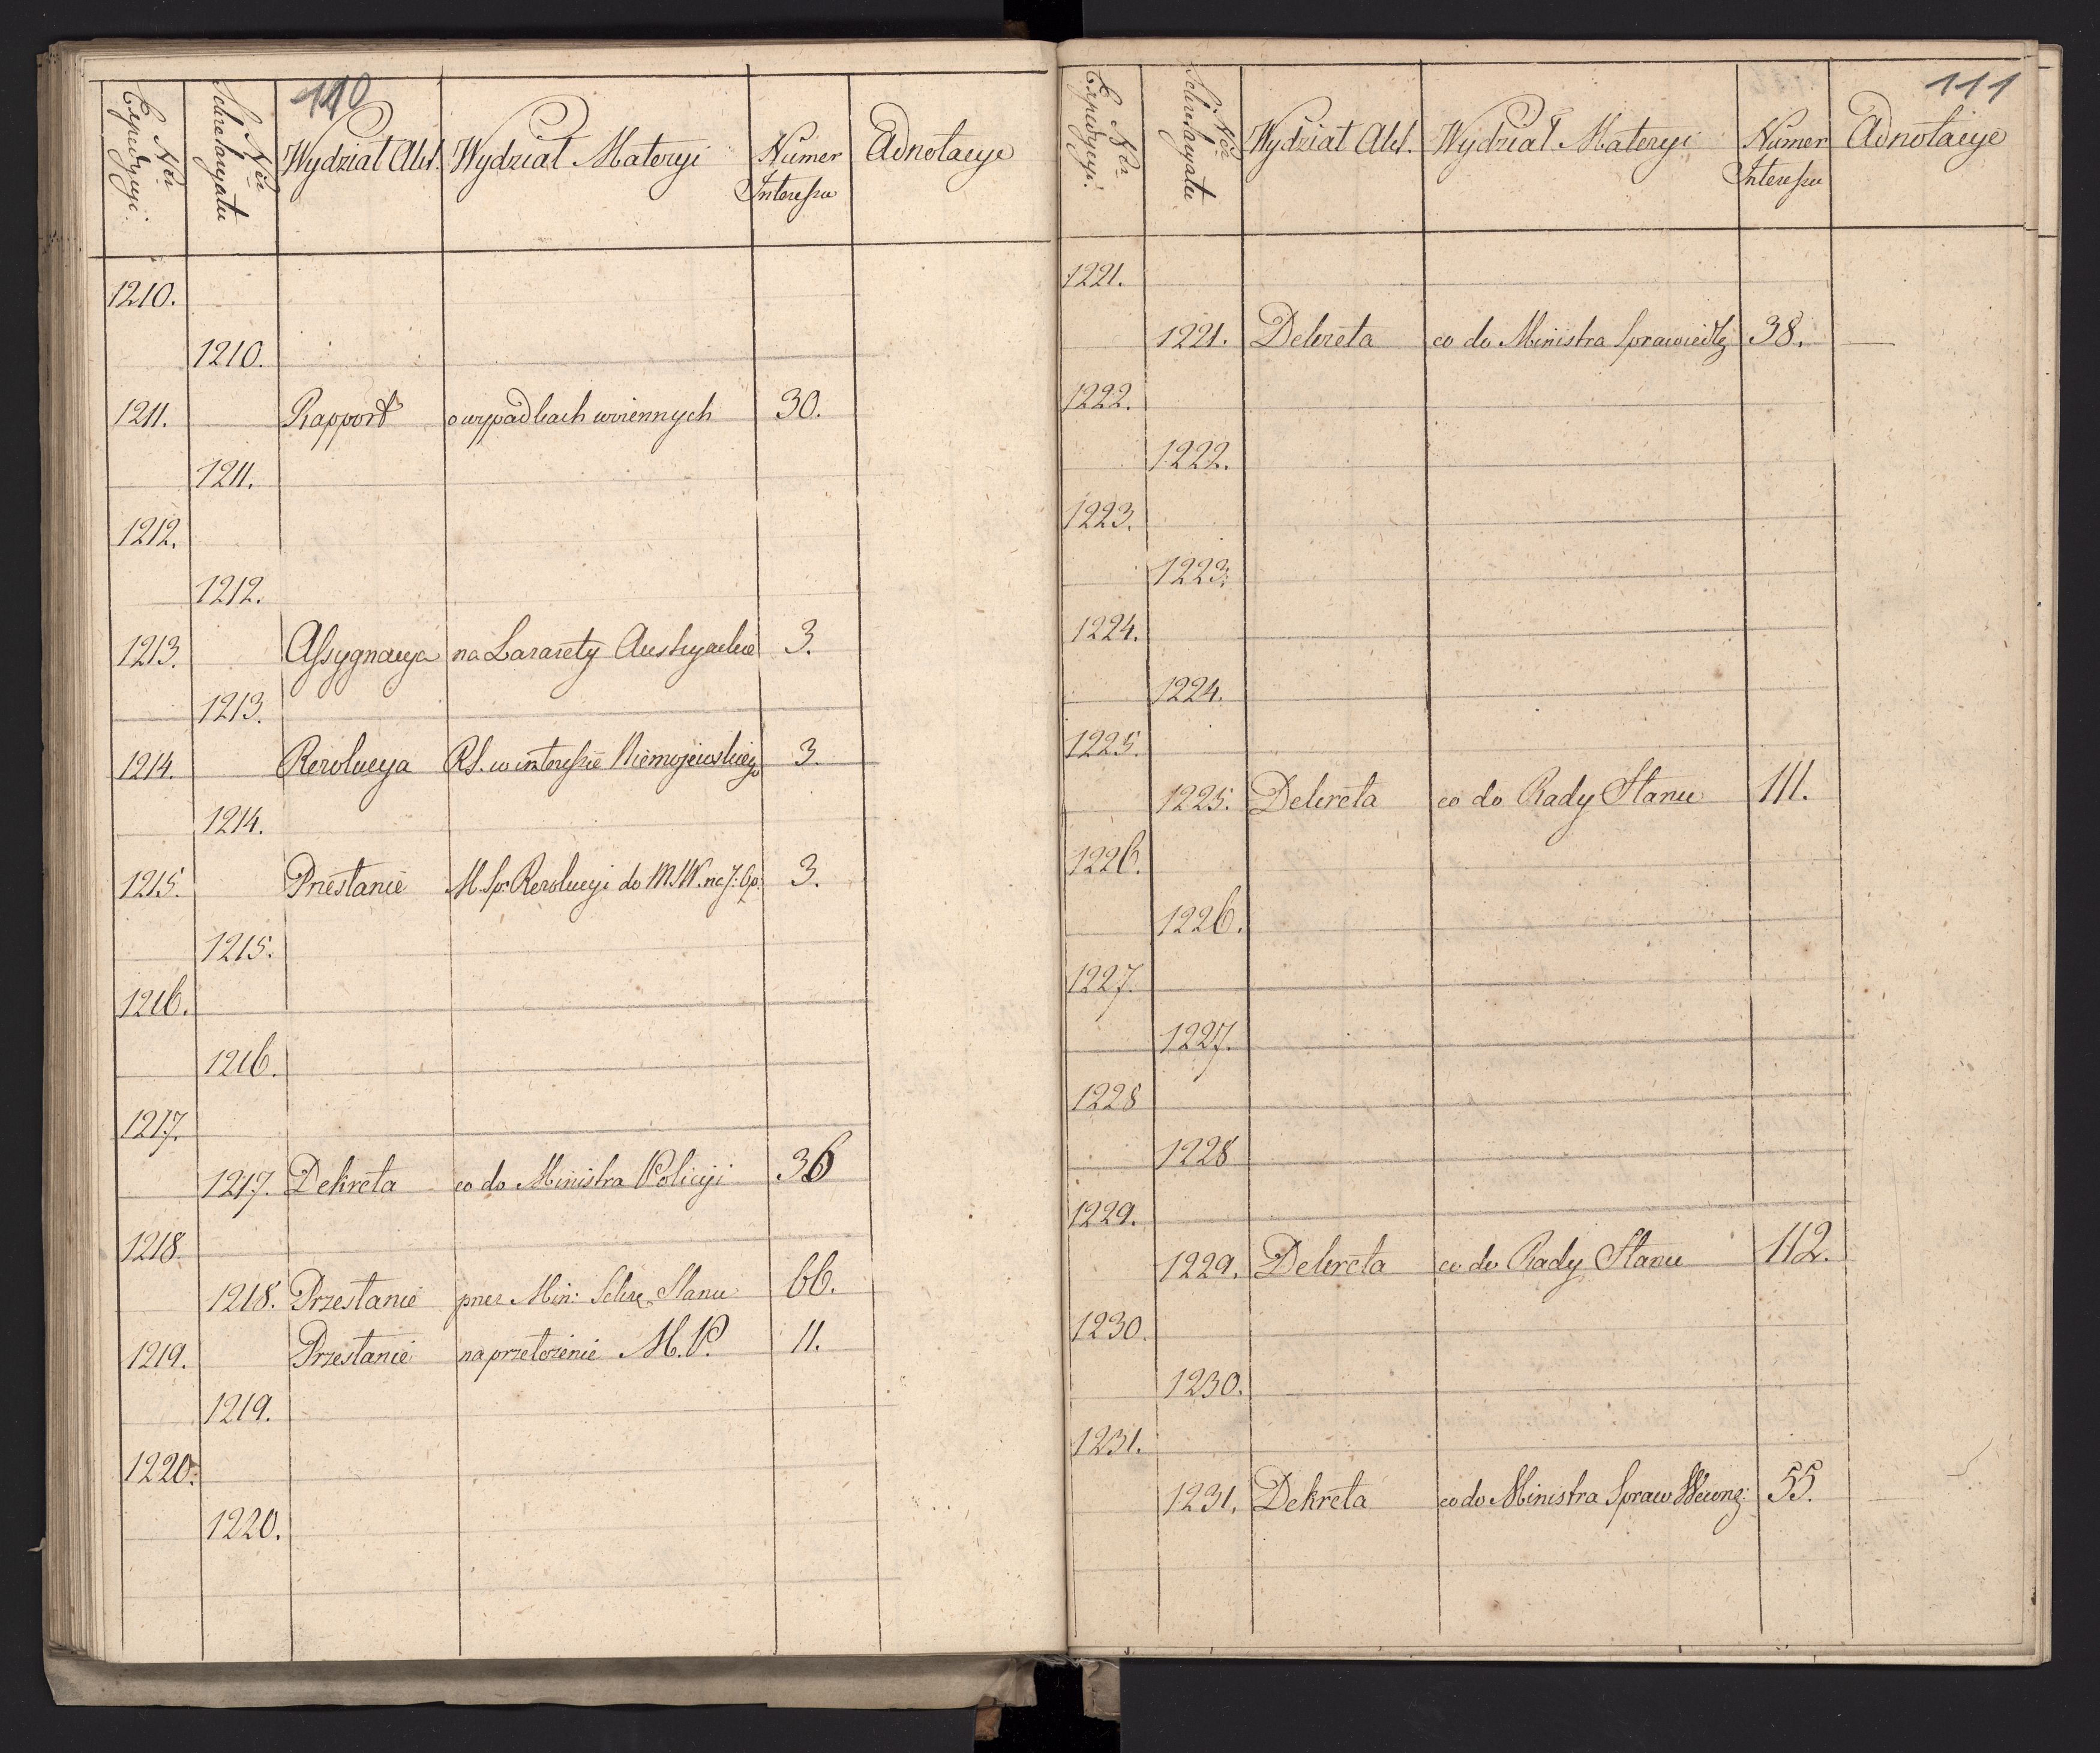 110
Nr Expedycyi.
Nr Sekretaryatu
Wydział Akt.
Wydział Materyi
Numer Interessu
Adnotacye
1210.
1210.
1211. Rapport o wypadkach woiennych 30.
1211.
1212.
1212.
1213. Assygnacya na Lazarety Austryackie 3.
1213.
1214. Rezolucya RS. w interessie Niemojewskiego 3.
1214.
1215. Przesłanie M. Sp. Rezolucyi do M.S.W. na 3.
1215.
1216.
1216.
1217.
1217. Dekreta co do Ministra Policyi 36
1218
1218. Przesłanie przez Min: Sekre. Stanu 66.
1219. Przesłanie na przełożenie M.P. 11.
1219.
1220.
1220.
111
Nr Expedycyi.
Nr Sekretaryatu
Wydział Akt.
Wydział Materyi
Numer Interessu
Adnotacye
1221.
1221. Dekreta co do Ministra Sprawiedly 38. —
1222.
1222.
1223.
1223.
1224.
1224.
1225.
1225. Dekreta co do Rady Stanu 111.
1226.
1226.
1227.
1227.
1228
1228
1229.
1229. Dekreta co do Rady Stanu 112.
1230.
1230.
1231.
1231. Dekreta co do Ministra Spraw Wewnę: 55.